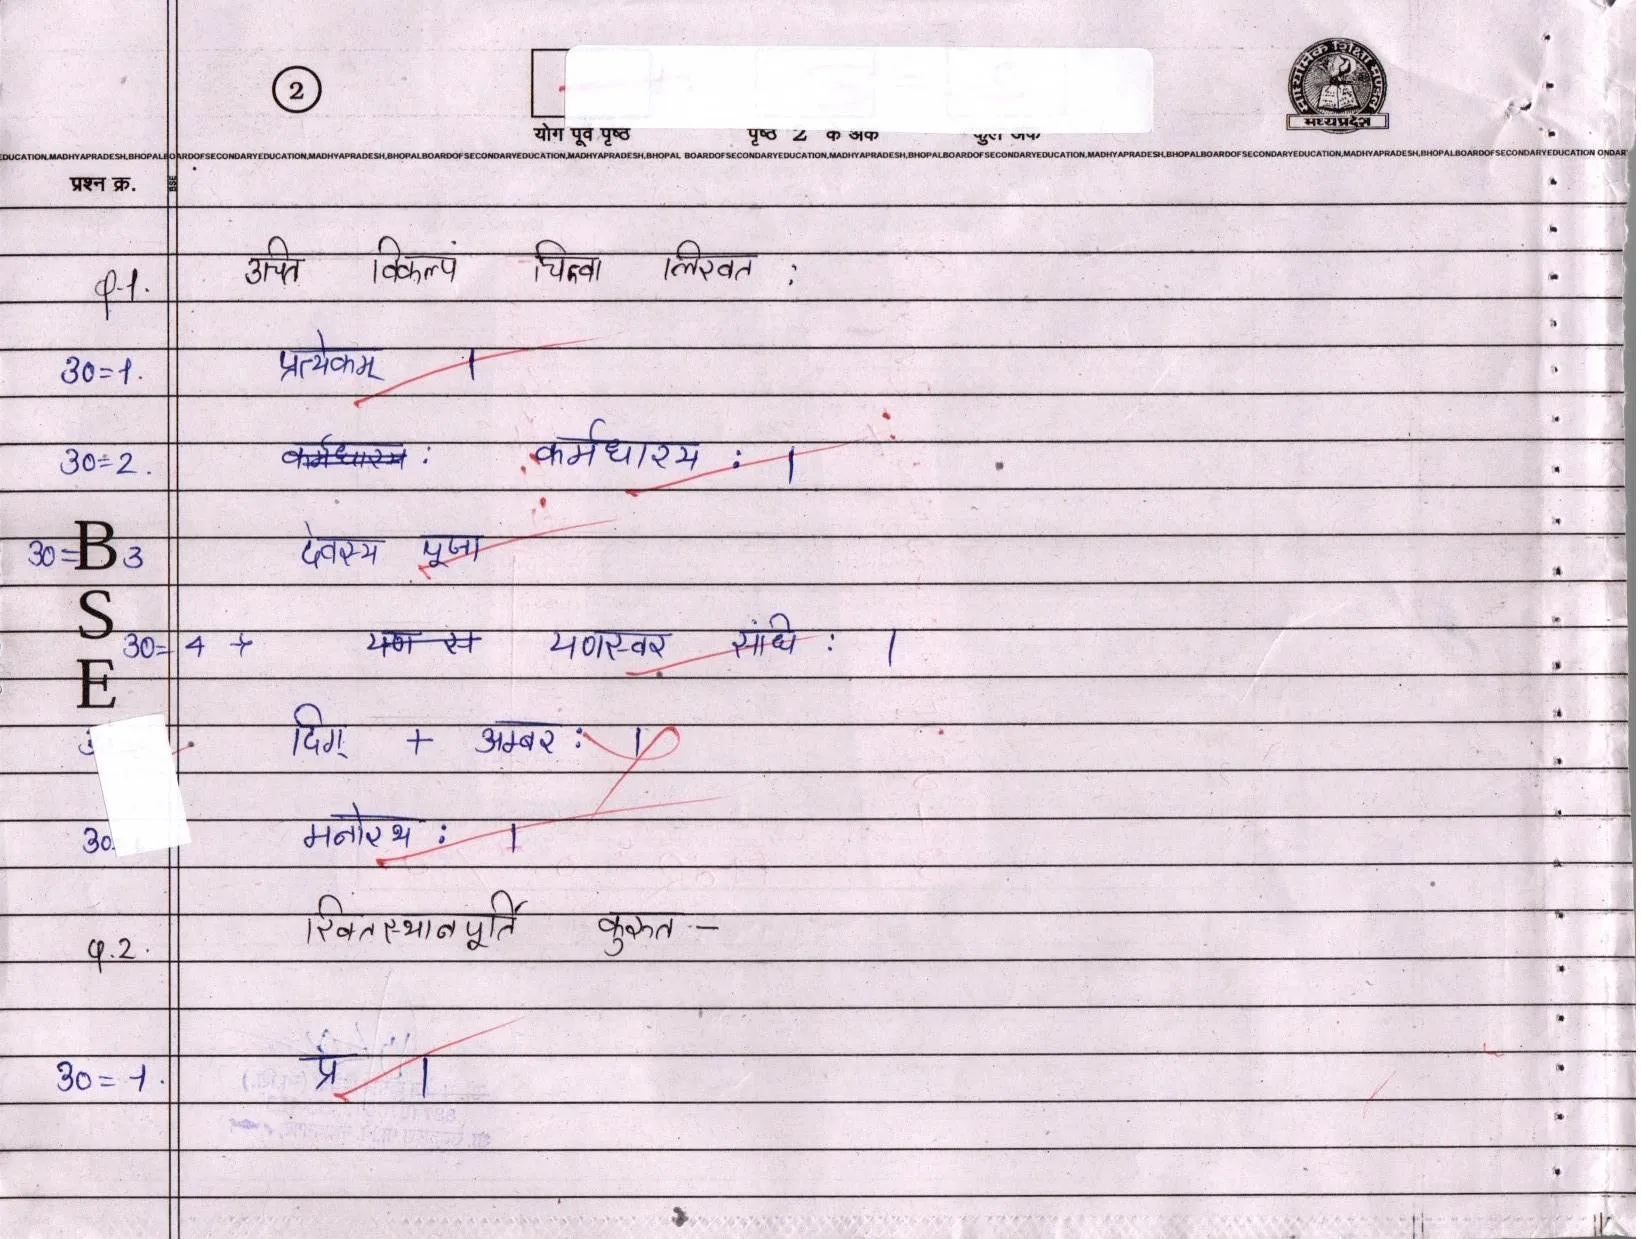 2
माध्यमिक शिक्षा मण्डल
मध्यप्रदेश
योग पूर्व पृष्ठ पृष्ठ 2 के अंक कुल अंक
EDUCATION,MADHYAPRADESH,BHOPALBOARDOFSECONDARYEDUCATION,MADHYAPRADESH,BHOPALBOARDOFSECONDARYEDUCATION,MADHYAPRADESH,BHOPAL BOARDOFSECONDARYEDUCATION,MADHYAPRADESH,BHOPALBOARDOFSECONDARYEDUCATION,MADHYAPRADESH,BHOPALBOARDOFSECONDARYEDUCATION ONDAR
प्रश्न क्र. BSE
Q.1. उचित विकल्पं चित्वा लिखत :
उ०=1. प्रत्येकम् ।
उ०=2. कर्मधारय : कर्मधारय : ।
उ०=3 देवस्य पूजा
उ०=4 → यण स्व यणस्वर संधि : ।
दिग् + अम्बर : ।
उ० मनोरथ : ।
Q.2. रिक्तस्थानपूर्ति कुरुत -
उ०=1. प्र ।
B
S
E